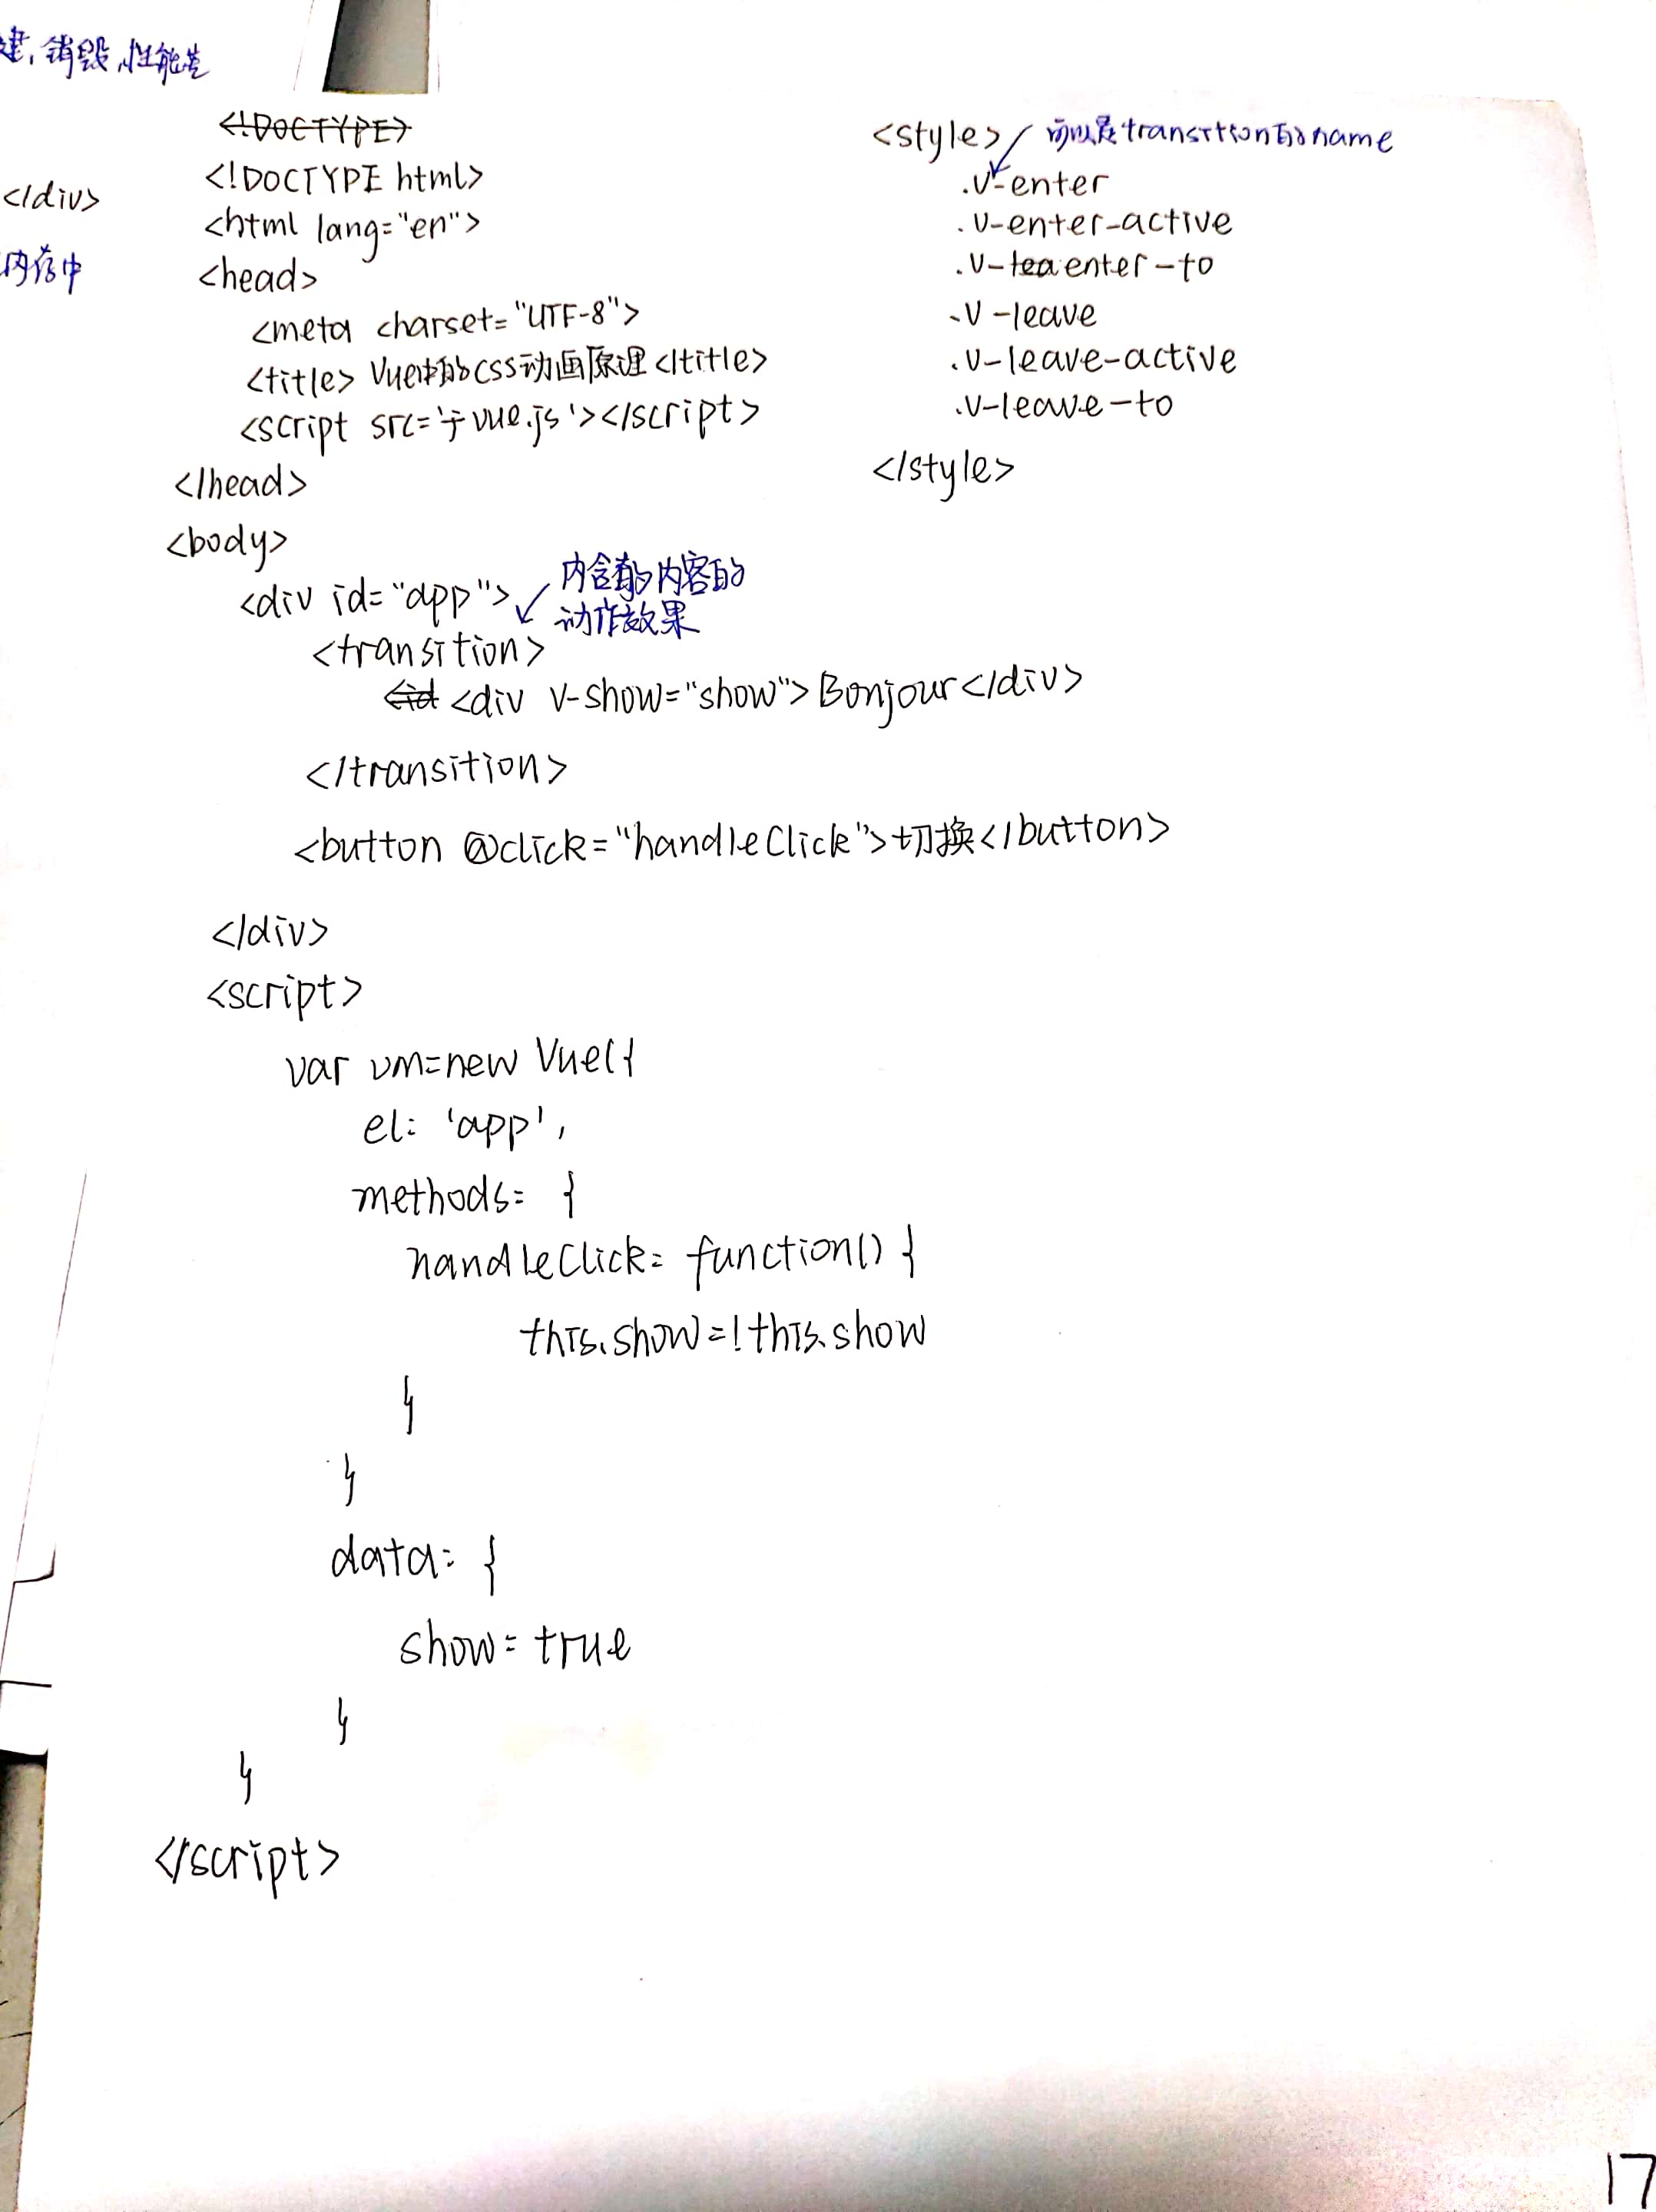 建,销毁,性能差
</div>
内存中
<!DOCTYPE>
<!DOCTYPE html>
<html lang="en">
<head>
<meta charset="UTF-8">
<title>Vue中的css动画原理</title>
<script src='./vue.js'></script>
</head>
<body>
<div id="app">
内含的内容的
动作效果
<transition>
<div v-show="show">Bonjour</div>
</transition>
<button @click="handleClick">切换</button>
</div>
<script>
var vm=new Vue({
el: 'app',
methods: {
handleClick: function() {
this.show=!this.show
}
}
data: {
show: true
}
}
</script>
<style>
可以是transition的name
.v-enter
.v-enter-active
.v-enter-to
.v-leave
.v-leave-active
.v-leave-to
</style>
17